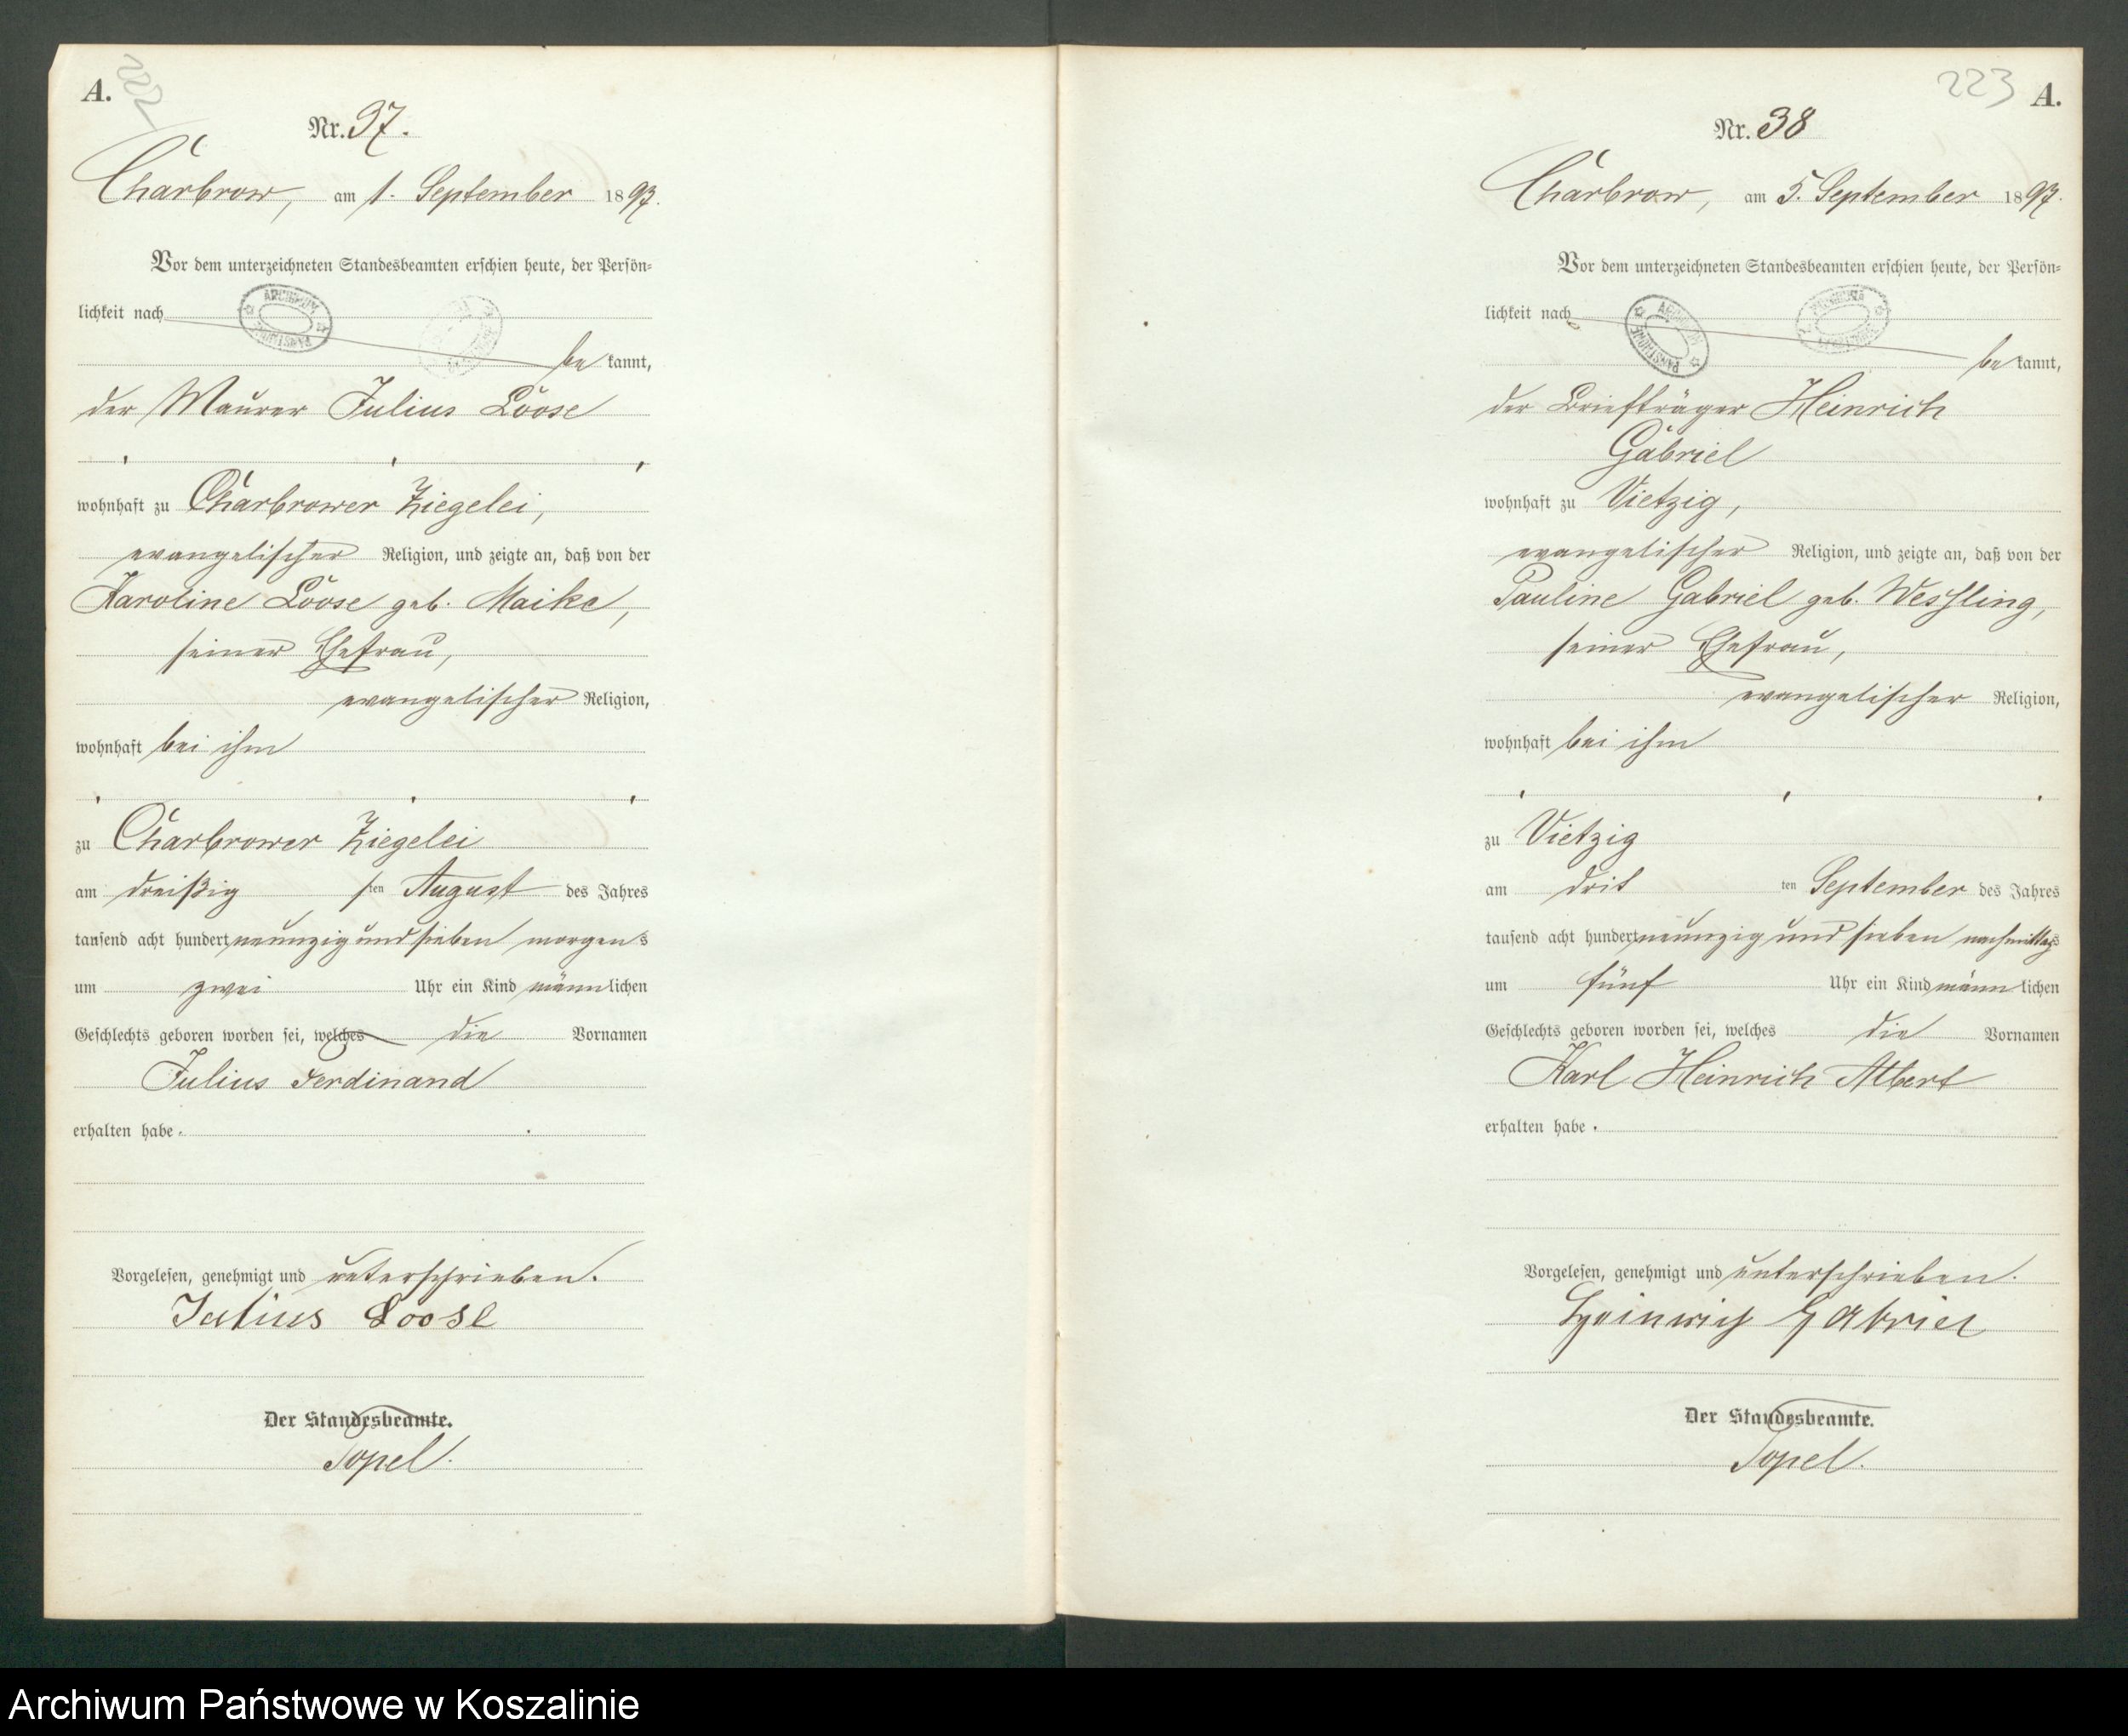 222
A.
Nr. 37.
Charbrow, am 1. September 1897.
Vor dem unterzeichneten Standesbeamten erschien heute, der Persön-
lichkeit nach
be kannt,
der Maurer Julius Loose
wohnhaft zu Charbrower Ziegelei,
evangelischer Religion, und zeigte an, daß von der
Karoline Loose geb. Maike,
seiner Ehefrau,
evangelischer Religion,
wohnhaft bei ihm
zu Charbrower Ziegelei
am dreißig sten August des Jahres
tausend acht hundert neunzig und sieben morgens
um zwei Uhr ein Kind männlichen
Geschlechts geboren worden sei, welches die Vornamen
Julius Ferdinand
erhalten habe.
Vorgelesen, genehmigt und unterschrieben.
Julius Loose
Der Standesbeamte.
Topel.
223
A.
Nr. 38
Charbrow, am 5. September 1897.
Vor dem unterzeichneten Standesbeamten erschien heute, der Persön-
lichkeit nach
be kannt,
der Briefträger Heinrich
Gabriel
wohnhaft zu Vietzig,
evangelischer Religion, und zeigte an, daß von der
Pauline Gabriel geb. Wessling,
seiner Ehefrau,
evangelischer Religion,
wohnhaft bei ihm
zu Vietzig
am drit ten September des Jahres
tausend acht hundert neunzig und sieben nachmittags
um fünf Uhr ein Kind männlichen
Geschlechts geboren worden sei, welches die Vornamen
Karl Heinrich Albert
erhalten habe.
Vorgelesen, genehmigt und unterschrieben.
Heinrich Gabriel
Der Standesbeamte.
Topel.
Archiwum Państwowe w Koszalinie